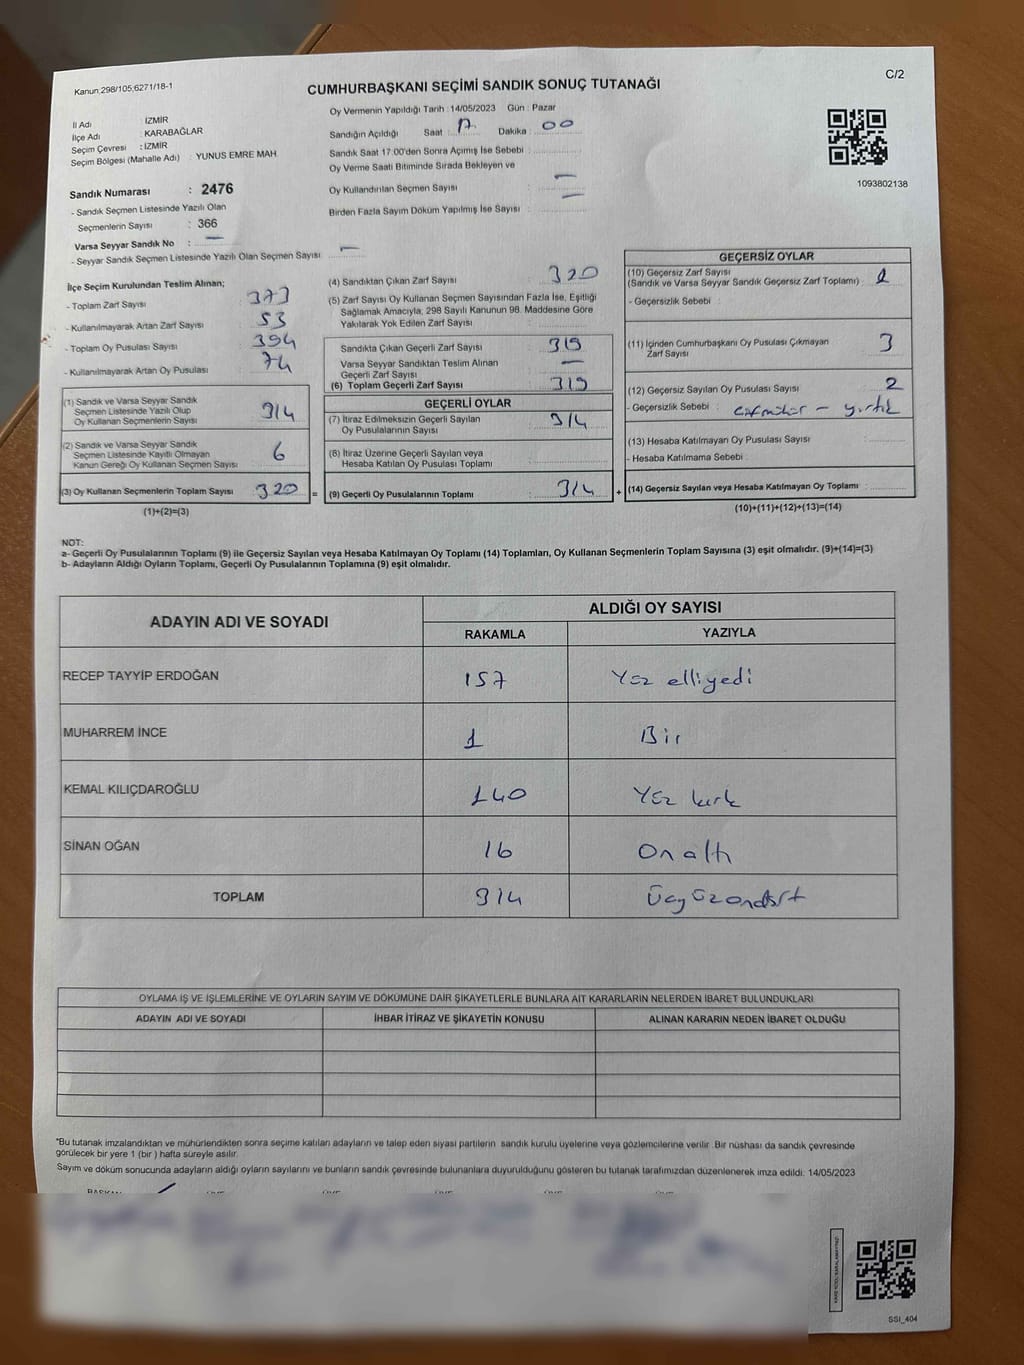 Kanun 298/105,6271/18-1
C/2
CUMHURBAŞKANI SEÇİMİ SANDIK SONUÇ TUTANAĞI
İl Adı : İZMİR
İlçe Adı : KARABAĞLAR
Seçim Çevresi : İZMİR
Seçim Bölgesi (Mahalle Adı) : YUNUS EMRE MAH.
Sandık Numarası : 2476
- Sandık Seçmen Listesinde Yazılı Olan
Seçmenlerin Sayısı : 366
Varsa Seyyar Sandık No : —
- Seyyar Sandık Seçmen Listesinde Yazılı Olan Seçmen Sayısı —
Oy Vermenin Yapıldığı Tarih : 14/05/2023 Gün : Pazar
Sandığın Açıldığı Saat : 17 Dakika : 00
Sandık Saat 17:00'den Sonra Açımış İse Sebebi :
Oy Verme Saati Bitiminde Sırada Bekleyen ve
Oy Kullandırılan Seçmen Sayısı : —
Birden Fazla Sayım Döküm Yapılmış İse Sayısı : —
1093802138
İlçe Seçim Kurulundan Teslim Alınan;
- Toplam Zarf Sayısı 373
- Kullanılmayarak Artan Zarf Sayısı 53
- Toplam Oy Pusulası Sayısı 394
- Kullanılmayarak Artan Oy Pusulası 74
(1) Sandık ve Varsa Seyyar Sandık
Seçmen Listesinde Yazılı Olup
Oy Kullanan Seçmenlerin Sayısı 314
(2) Sandık ve Varsa Seyyar Sandık
Seçmen Listesinde Kayıtlı Olmayan
Kanun Gereği Oy Kullanan Seçmen Sayısı 6
(3) Oy Kullanan Seçmenlerin Toplam Sayısı 320
(1)+(2)=(3)
(4) Sandıktan Çıkan Zarf Sayısı 320
(5) Zarf Sayısı Oy Kullanan Seçmen Sayısından Fazla İse, Eşitliği
Sağlamak Amacıyla, 298 Sayılı Kanunun 98. Maddesine Göre
Yakılarak Yok Edilen Zarf Sayısı
Sandıkta Çıkan Geçerli Zarf Sayısı 319
Varsa Seyyar Sandıktan Teslim Alınan
Geçerli Zarf Sayısı —
(6) Toplam Geçerli Zarf Sayısı 319
GEÇERLİ OYLAR
(7) İtiraz Edilmeksizin Geçerli Sayılan
Oy Pusulalarının Sayısı 314
(8) İtiraz Üzerine Geçerli Sayılan veya
Hesaba Katılan Oy Pusulası Toplamı
= (9) Geçerli Oy Pusulalarının Toplamı 314 +
GEÇERSİZ OYLAR
(10) Geçersiz Zarf Sayısı
(Sandık ve Varsa Seyyar Sandık Geçersiz Zarf Toplamı) :
- Geçersizlik Sebebi :
(11) İçinden Cumhurbaşkanı Oy Pusulası Çıkmayan
Zarf Sayısı 3
(12) Geçersiz Sayılan Oy Pusulası Sayısı 2
- Geçersizlik Sebebi : – yırtık
(13) Hesaba Katılmayan Oy Pusulası Sayısı
- Hesaba Katılmama Sebebi
(14) Geçersiz Sayılan veya Hesaba Katılmayan Oy Toplamı :
(10)+(11)+(12)+(13)=(14)
NOT:
a- Geçerli Oy Pusulalarının Toplamı (9) ile Geçersiz Sayılan veya Hesaba Katılmayan Oy Toplamı (14) Toplamları, Oy Kullanan Seçmenlerin Toplam Sayısına (3) eşit olmalıdır. (9)+(14)=(3)
b- Adayların Aldığı Oyların Toplamı, Geçerli Oy Pusulalarının Toplamına (9) eşit olmalıdır.
ADAYIN ADI VE SOYADI
ALDIĞI OY SAYISI
RAKAMLA YAZIYLA
RECEP TAYYİP ERDOĞAN 157 Yüz elliyedi
MUHARREM İNCE 1 Bir
KEMAL KILIÇDAROĞLU 140 Yüz kırk
SİNAN OĞAN 16 On altı
TOPLAM 314 Üçyüzondört
OYLAMA İŞ VE İŞLEMLERİNE VE OYLARIN SAYIM VE DÖKÜMÜNE DAİR ŞİKAYETLERLE BUNLARA AİT KARARLARIN NELERDEN İBARET BULUNDUKLARI
ADAYIN ADI VE SOYADI İHBAR İTİRAZ VE ŞİKAYETİN KONUSU ALINAN KARARIN NEDEN İBARET OLDUĞU
*Bu tutanak imzalandıktan ve mühürlendikten sonra seçime katılan adayların ve talep eden siyasi partilerin sandık kurulu üyelerine veya gözlemcilerine verilir. Bir nüshası da sandık çevresinde
görülecek bir yere 1 (bir) hafta süreyle asılır.
Sayım ve döküm sonucunda adayların aldığı oyların sayılarını ve bunların sandık çevresinde bulunanlara duyurulduğunu gösteren bu tutanak tarafımızdan düzenlenerek imza edildi. 14/05/2023
SSI_404